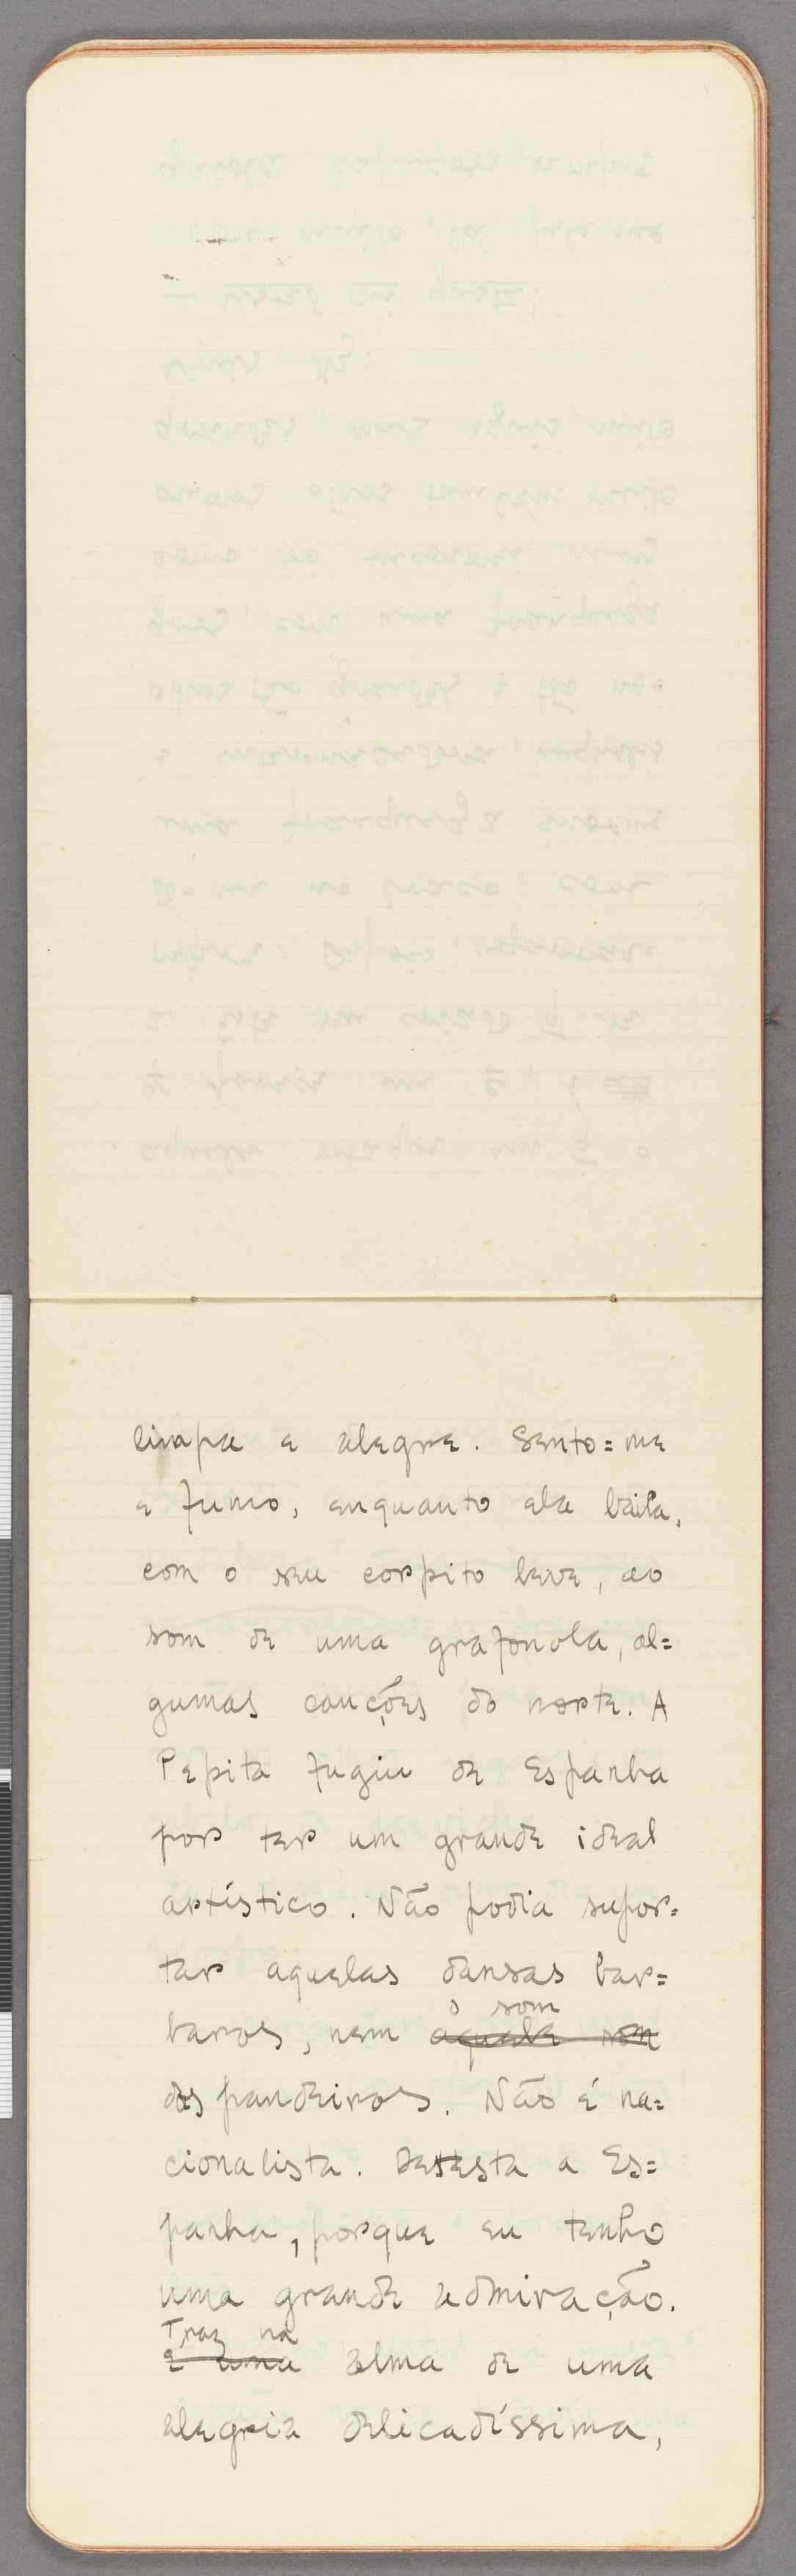 limpa e alegre. Sento=me
e fumo, enquanto ela baila,
com o seu corpito leve, ao
som de uma grafonola, al=
gumas canções do norte. A
Pepita fugiu de Espanha
por ter um grande ideal
artístico. Não podia supor=
tar aquelas dansas bar=
o som
baras, nem aquele som
dos pandeiros. Não é na=
cionalista. Detesta a Es=
panha, porque eu tenho
uma grande admiração.
Traz na
É uma alma de uma
alegria delicadíssima,